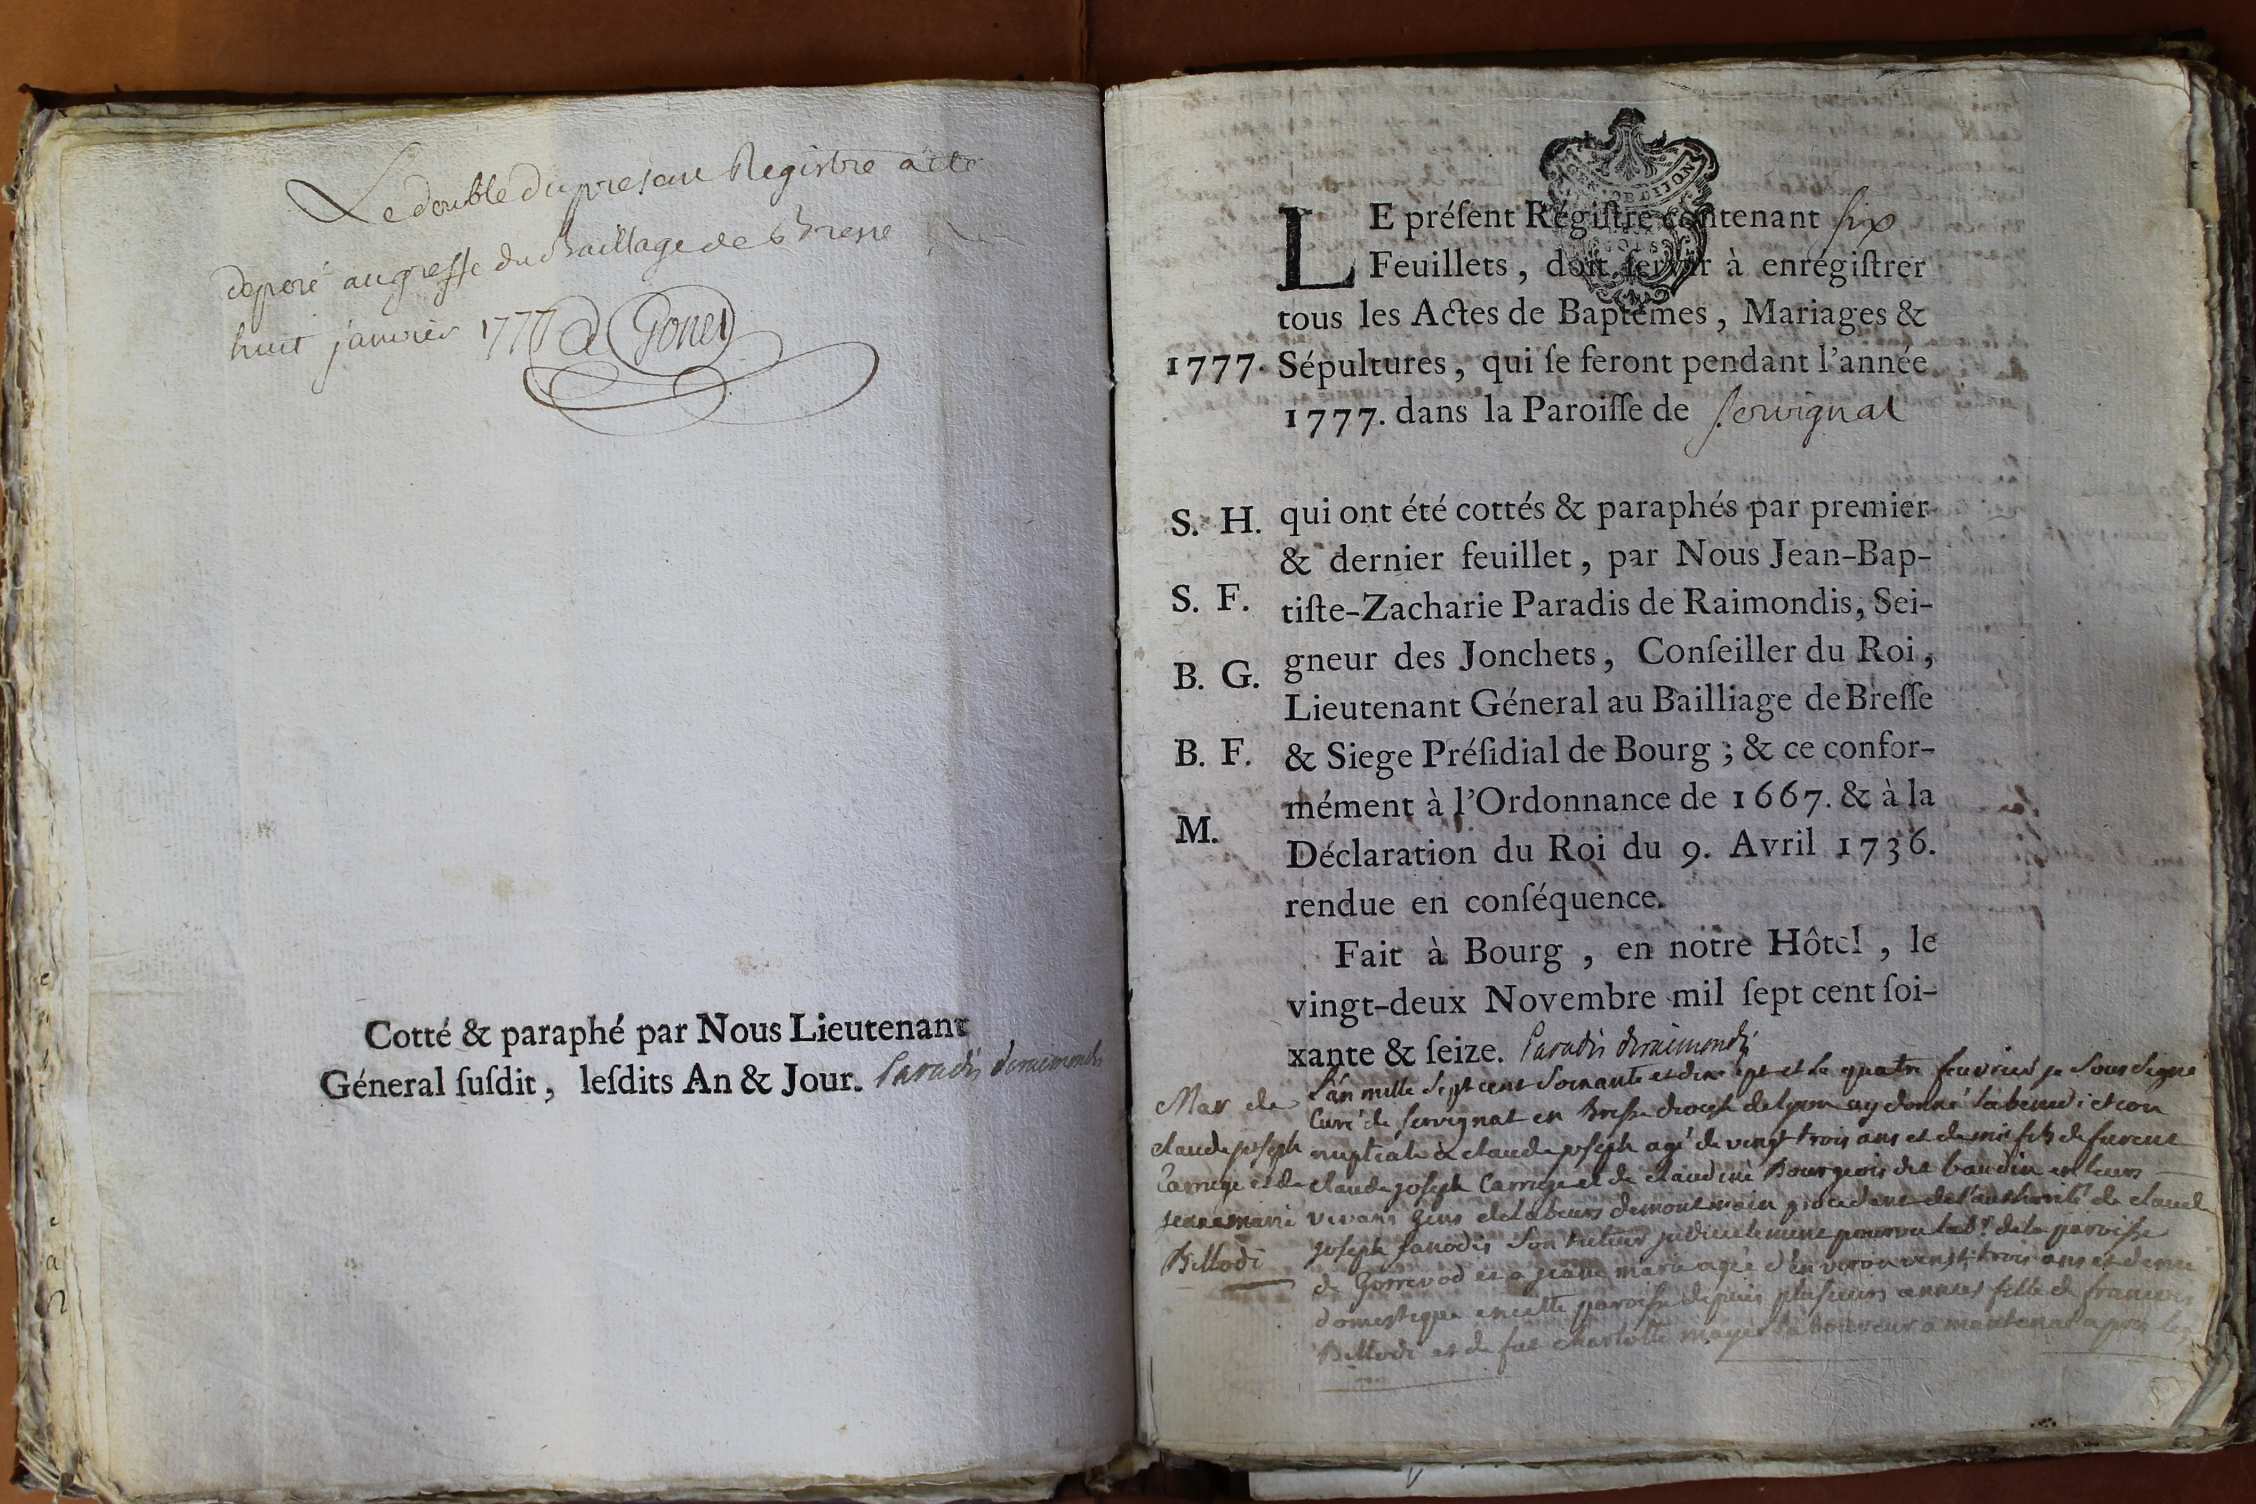 Le double du present Registre a ete
deposé au greffe du Bailliage de Bresse le
huit janvier 1777
Cotté & paraphé par Nous Lieutenant
Géneral ſuſdit, leſdits An & Jour. Paradis deraimondis
GEN. DE DIJON
LE préſent Régiſtre contenant ſix
Feuillets, doit ſervir à enrégiſtrer
tous les Actes de Baptêmes, Mariages &
1777. Sépultures, qui ſe feront pendant l'année
1777. dans la Paroiſſe de ſervignat
S. H. qui ont été cottés & paraphés par premier
& dernier feuillet, par Nous Jean-Bap-
S. F. tiſte-Zacharie Paradis de Raimondis, Sei-
gneur des Jonchets, Conſeiller du Roi,
B. G.
Lieutenant Géneral au Bailliage de Breſſe
B. F. & Siege Préſidial de Bourg ; & ce confor-
mément à l'Ordonnance de 1667. & à la
M.
Déclaration du Roi du 9. Avril 1736.
rendue en conſéquence.
Fait à Bourg, en notre Hôtel, le
vingt-deux Novembre mil ſept cent ſoi-
xante & ſeize. Paradis deraimondis
Mar de
claude joseph
Carruge et de
jeanne marie
Billodi
L'an mille sept cent soixante et dix sept et le quatre fevrier je soussigné
Curé de servignat en Bresse diocese de lyon ay donné la benediction
nuptiale a claude joseph agé de vingt trois ans et demi fils de furent
claude joseph Carruge et de claudine Bourgeois dit baudin en leurs
vivans gens de labeurs de montmain procedant de l'authorité de claude
joseph son tuteur judiciellement pourvu lab.r de la paroisse
de Gorrevod et a jeanne marie agée d'environ vingt trois ans et demi
domestique en cette paroisse depuis plusieurs années fille de francois
Billodi et de fue charlotte